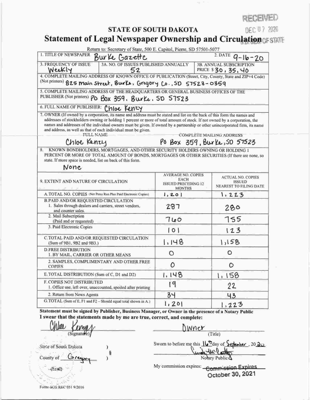 RECEIVED
DEC 07 2020
STATE OF SOUTH DAKOTA
Statement of Legal Newspaper Ownership and Circulation
Return to: Secretary of State, 500 E. Capitol, Pierre, SD 57501-5077
1. TITLE OF NEWSPAPER Burke Gazette
2. DATE 9-16-20
3. FREQUENCY OF ISSUE Weekly
3A. NO. OF ISSUES PUBLISHED ANNUALLY 52
3B. ANNUAL SUBSCRIPTION PRICE $30, 35, 40
4. COMPLETE MAILING ADDRESS OF KNOWN OFFICE OF PUBLICATION (Street, City, County, State and ZIP+4 Code) (Not printers)
825 Main Street, Burke, Gregory Co., SD 57523-0359
5. COMPLETE MAILING ADDRESS OF THE HEADQUARTERS OR GENERAL BUSINESS OFFICES OF THE PUBLISHER (Not printers) PO Box 359, Burke, SD 57523
6. FULL NAME OF PUBLISHER Chloe Kenzy
7. OWNER (If owned by a corporation, its name and address must be stated and also list on the back of this form the names and addresses of stockholders owning or holding 1 percent or more of total amount of stock. If not owned by a corporation, the names and addresses of the individual owners must be given. If owned by a partnership or other unincorporated firm, its name and address, as well as that of each individual must be given.
FULL NAME
COMPLETE MAILING ADDRESS
Chloe Kenzy
PO Box 359, Burke, SD 57523
8. KNOWN BONDHOLDERS, MORTGAGES, AND OTHER SECURITY HOLDERS OWNING OR HOLDING 1 PERCENT OR MORE OF TOTAL AMOUNT OF BONDS, MORTGAGES OR OTHER SECURITIES (If there are none, so state. If more space is needed, list on back of this form.
None
9. EXTENT AND NATURE OF CIRCULATION
AVERAGE NO. COPIES EACH ISSUED PRECEDING 12 MONTHS
ACTUAL NO. COPIES ISSUED NEAREST TO FILING DATE
A. TOTAL NO. COPIES 1,201 1,223
B. PAID AND/OR REQUESTED CIRCULATION
1. Sales through dealers and carriers, street vendors, and counter sales. 287 280
2. Mail Subscription (Paid and or requested) 760 755
3. Paid Electronic Copies 101 123
C. TOTAL PAID AND/OR REQUESTED CIRCULATION (Sum of 9B1, 9B2 and 9B3.) 1,148 1,158
D. FREE DISTRIBUTION
1. BY MAIL, CARRIER OR OTHER MEANS 0 0
2. SAMPLES, COMPLIMENTARY AND OTHER FREE COPIES 0 0
E. TOTAL DISTRIBUTION (Sum of C, D1 and D2) 1,148 1,158
F. COPIES NOT DISTRIBUTED
1. Office use, left over, unaccounted, spoiled after printing 19 22
2. Return from News Agents 34 43
G. TOTAL (Sum of E, F1 and F2 - Should equal total shown in A.) 1,201 1,223
Statement must be signed by Publisher, Business Manager, or Owner in the presence of a Notary Public
I swear that the statements made by me are true, correct, and complete:
Chloe Kenzy
Owner
(Signature)
(Title)
State of South Dakota )
Sworn to before me this 16th day of September, 20 20
County of Gregory )
Notary Public
(Seal)
My commission expires: Commission Expires
October 30, 2021